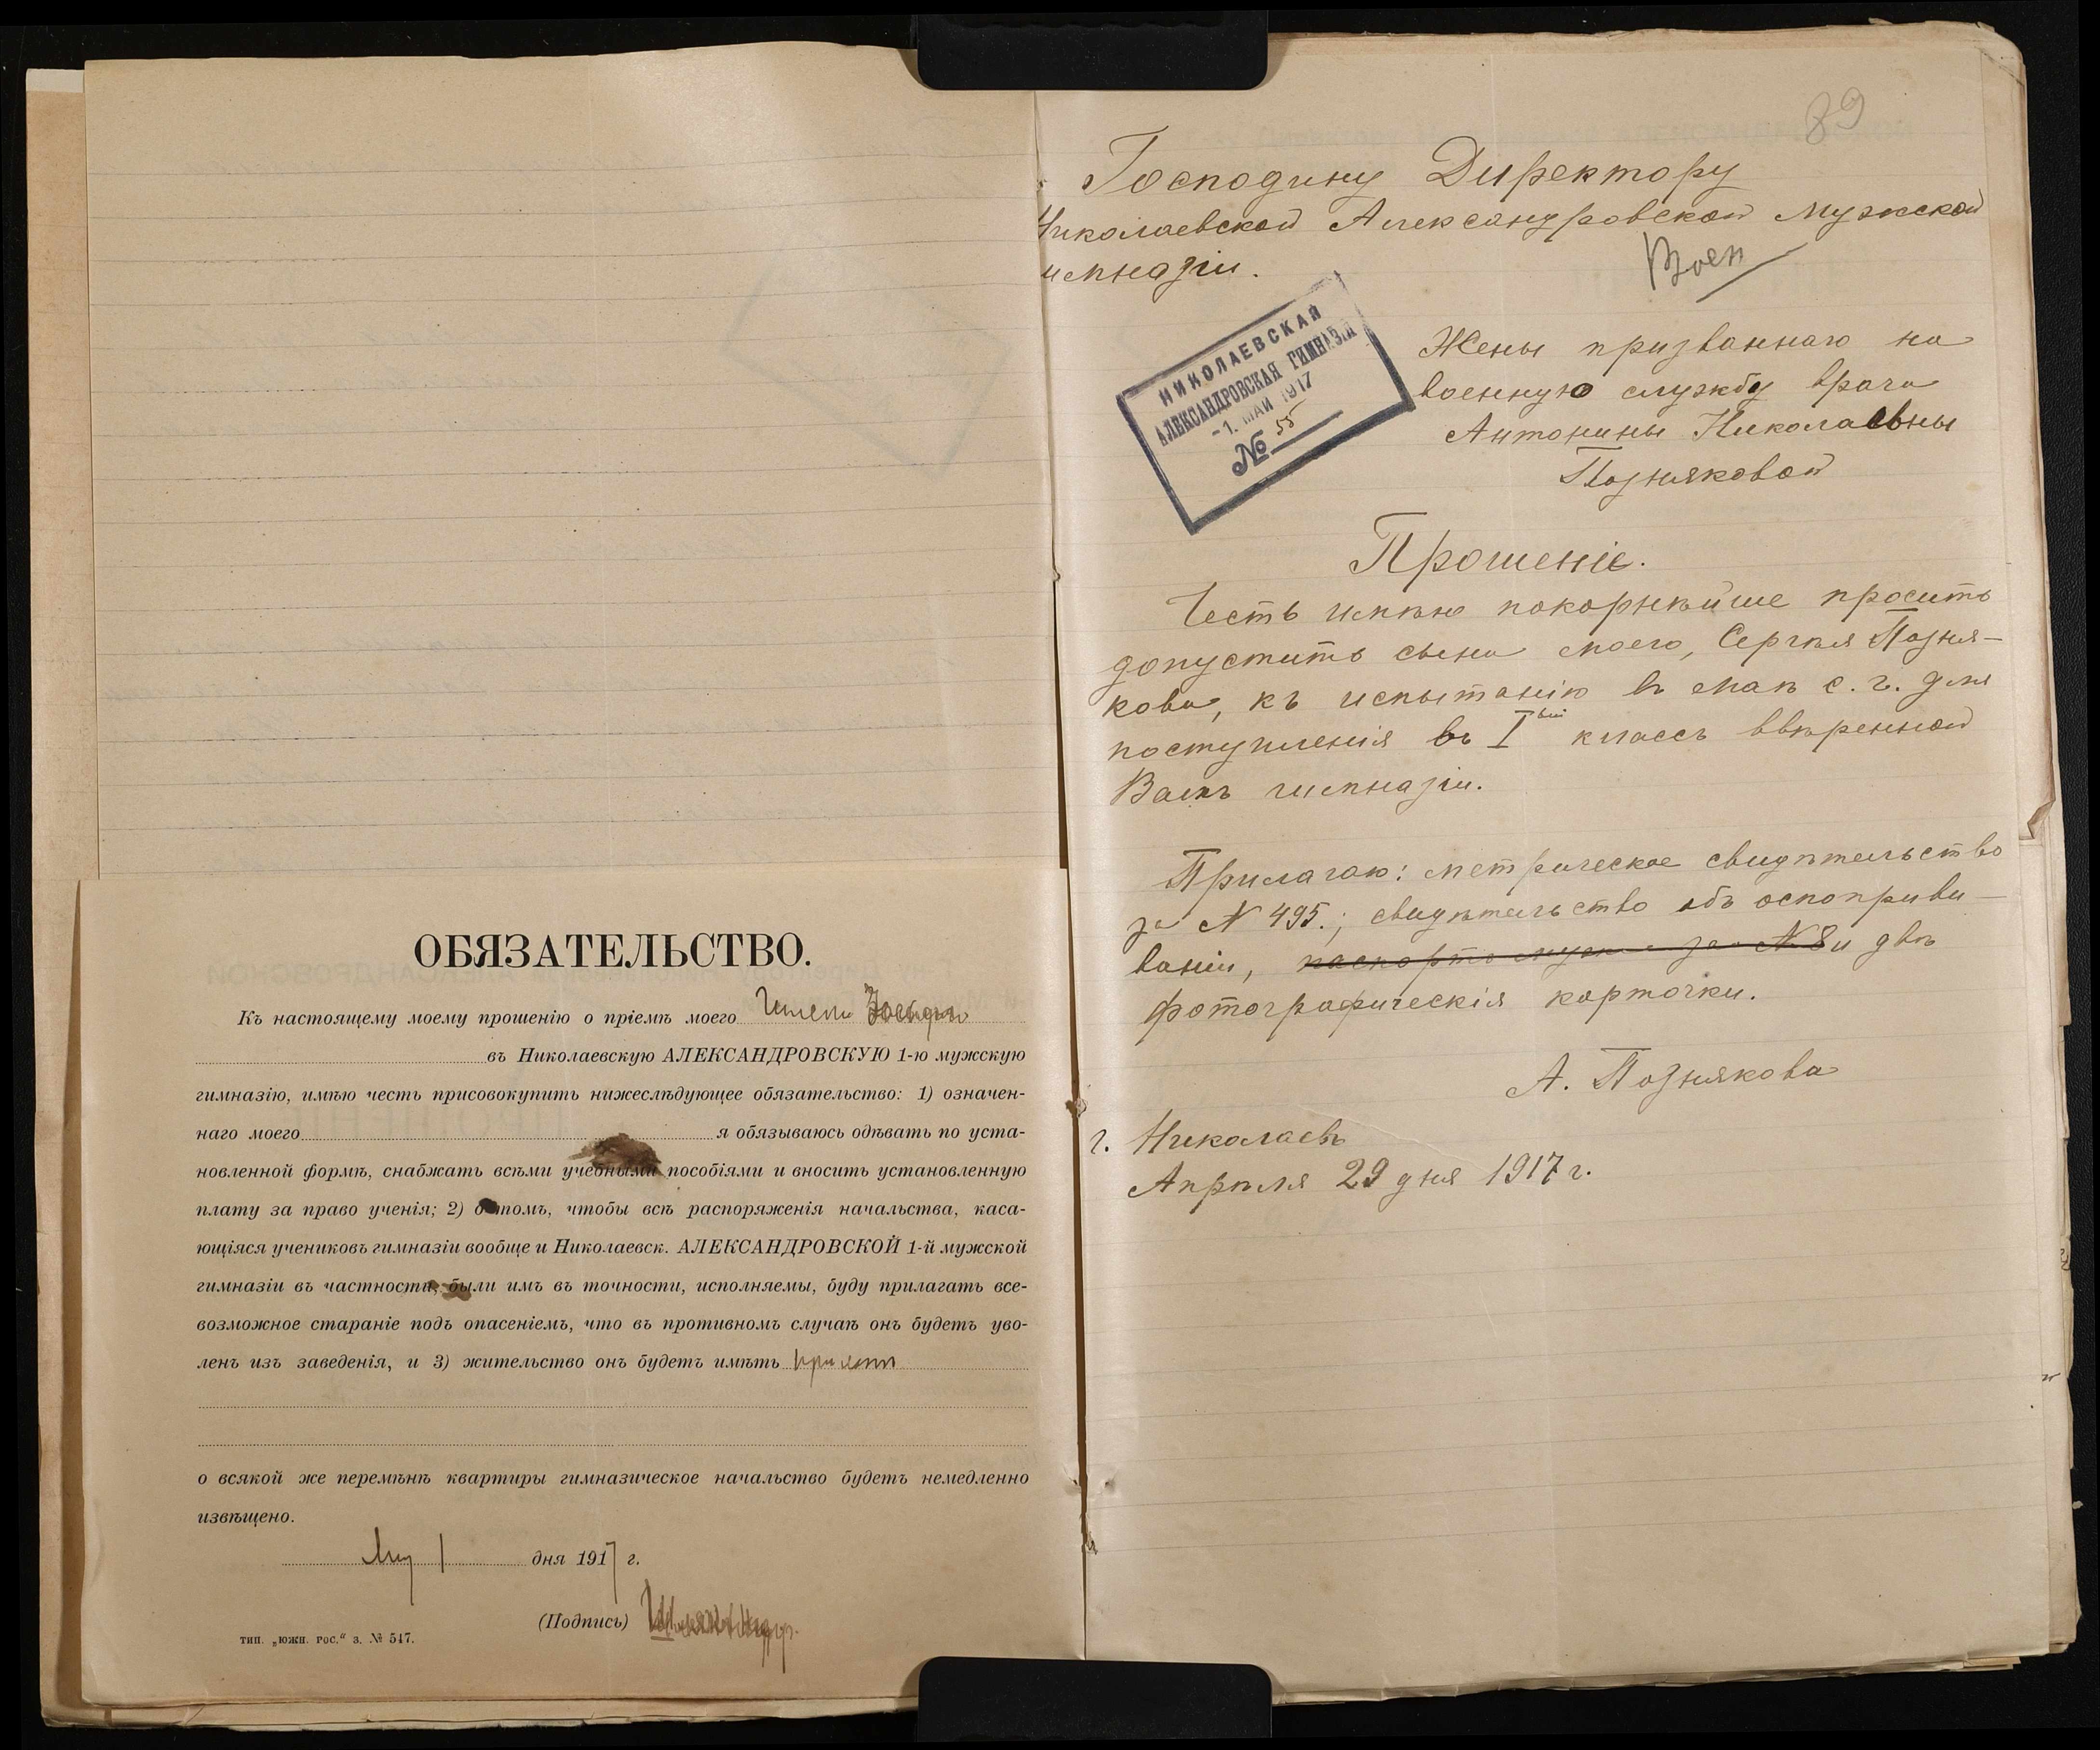 ОБЯЗАТЕЛЬСТВО.
Къ настоящему моему прошенію о пріемѣ моего
въ Николаевскую АЛЕКСАНДРОВСКУЮ 1-ю мужскую
гимназію, имѣю честь присовокупить нижеслѣдующее обязательство: 1) означен-
наго моего я обязываюсь одѣвать по уста-
новленной формѣ, снабжать всѣми учебными пособіями и вносить установленную
плату за право ученія; 2) о томъ, чтобы всѣ распоряженія начальства, каса-
ющіяся учениковъ гимназіи вообще и Николаевск. АЛЕКСАНДРОВСКОЙ 1-й мужской
гимназіи въ частности, были имъ въ точности, исполняемы, буду прилагать все-
возможное стараніе подъ опасеніемъ, что въ противномъ случаѣ онъ будетъ уво-
ленъ изъ заведенія, и 3) жительство онъ будетъ имѣть
о всякой же перемѣнѣ квартиры гимназическое начальство будетъ немедленно
извѣщено.
1 дня 1917 г.
(Подпись)
тип. „южн. рос.“ з. № 547.
89
Господину Директору
Николаевской Александровской Мужской
имназіи.
Воен
НИКОЛАЕВСКАЯ
АЛЕКСАНДРОВСКАЯ ГИМНАЗІЯ
-1. МАЙ 1917
№ 55
Жены призваннаго на
военную службу врача
Антонины Николаевны
Позняковой
Прошеніе.
Честь имѣю покорнѣйше просить
допустить сына моего, Сергѣя Позня-
кова, къ испытанію въ маѣ с. г. для
поступленія въ I ый классъ ввѣренной
Вамъ гимназіи.
Прилагаю: метрическое свидѣтельство
за N 495.; свидѣтельство объ оспоприви-
ваніи, паспортъ мужа за N 8 и двѣ
фотографическія карточки.
А. Познякова
г. Николаевъ
Апрѣля 29 дня 1917 г.